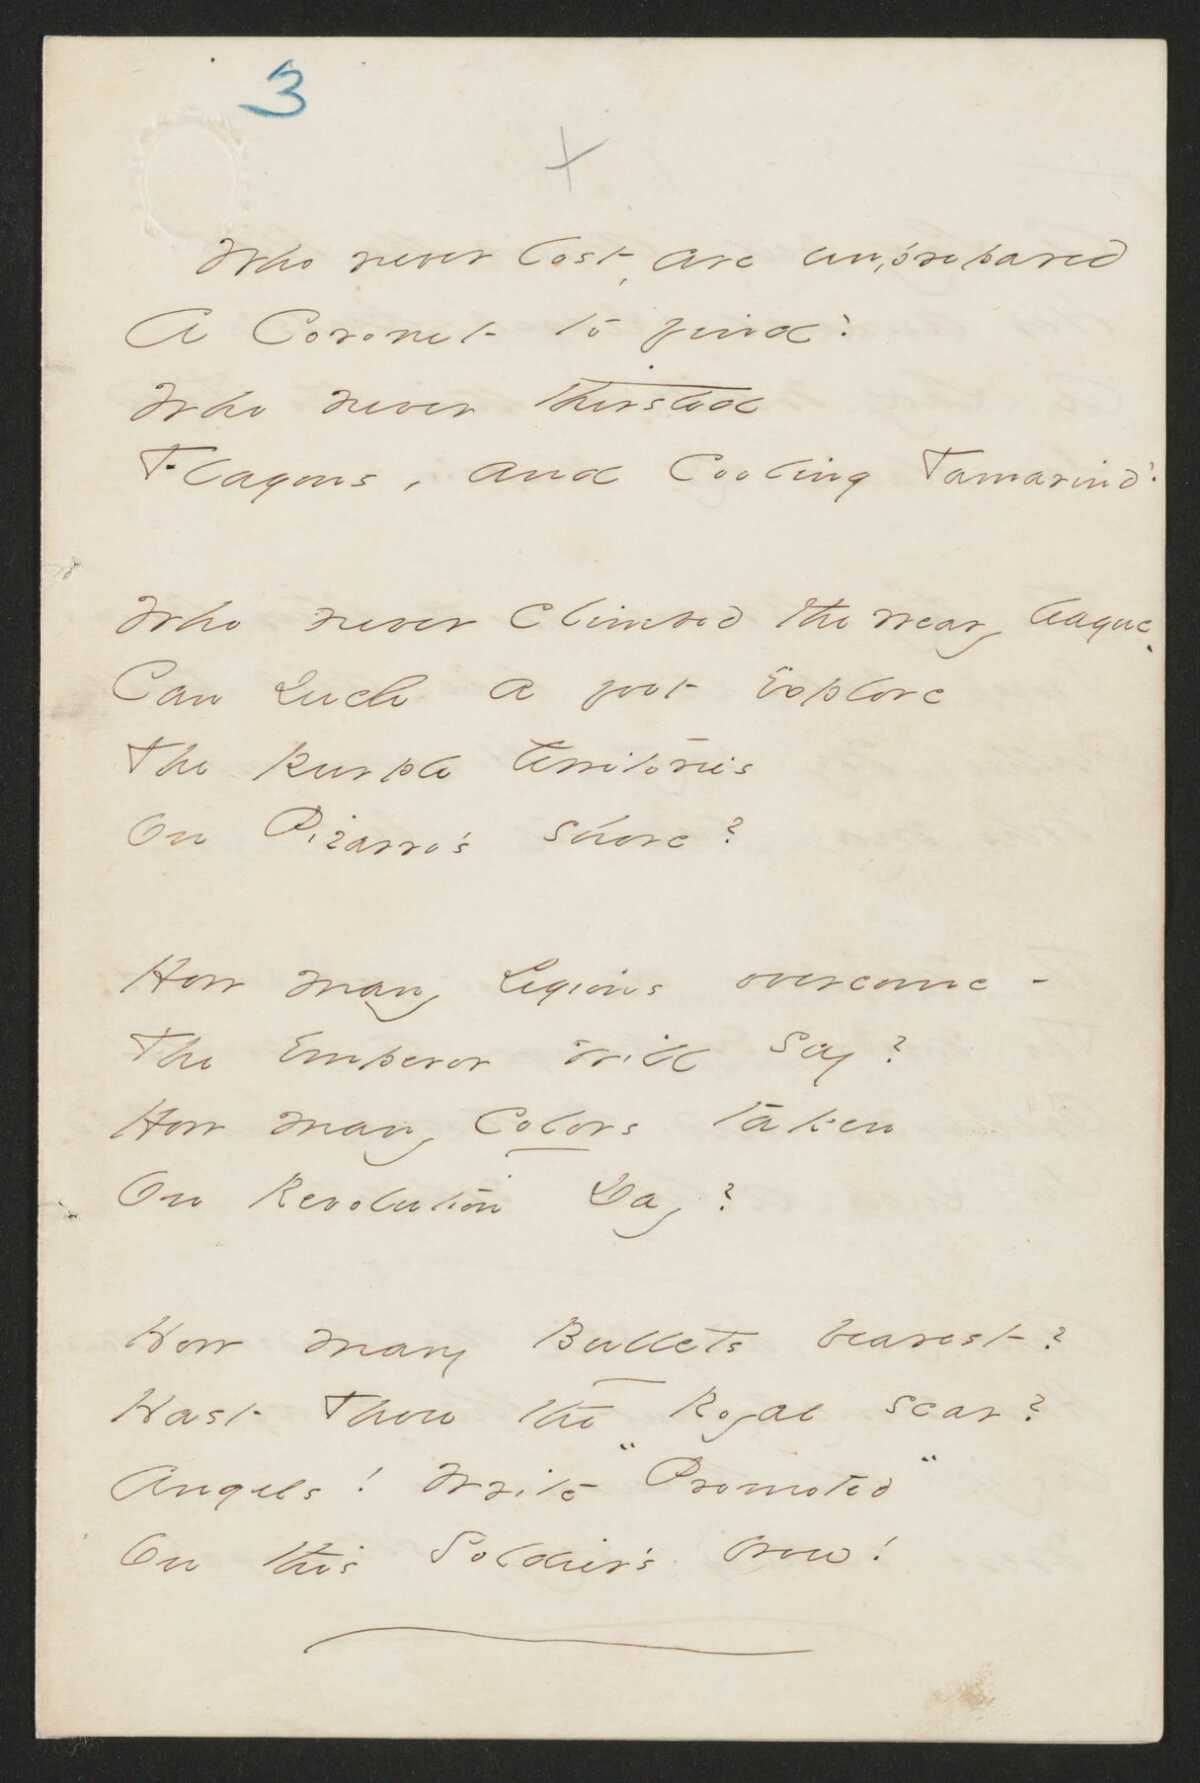 3
x
Who never lost, are unprepared
A Coronet to find!
Who never thirsted
Flagons, and Cooling Tamarind!
Who never Climbed the weary league,
Can such a foot Explore
The purple territories
On Pizarro's shore?
How many Legions overcome -
The Emperor will say?
How many Colors taken
On Revolution Day?
How many Bullets bearest?
Hast Thou the Royal scar?
Angels! Write "Promoted"
On this Soldier's brow!